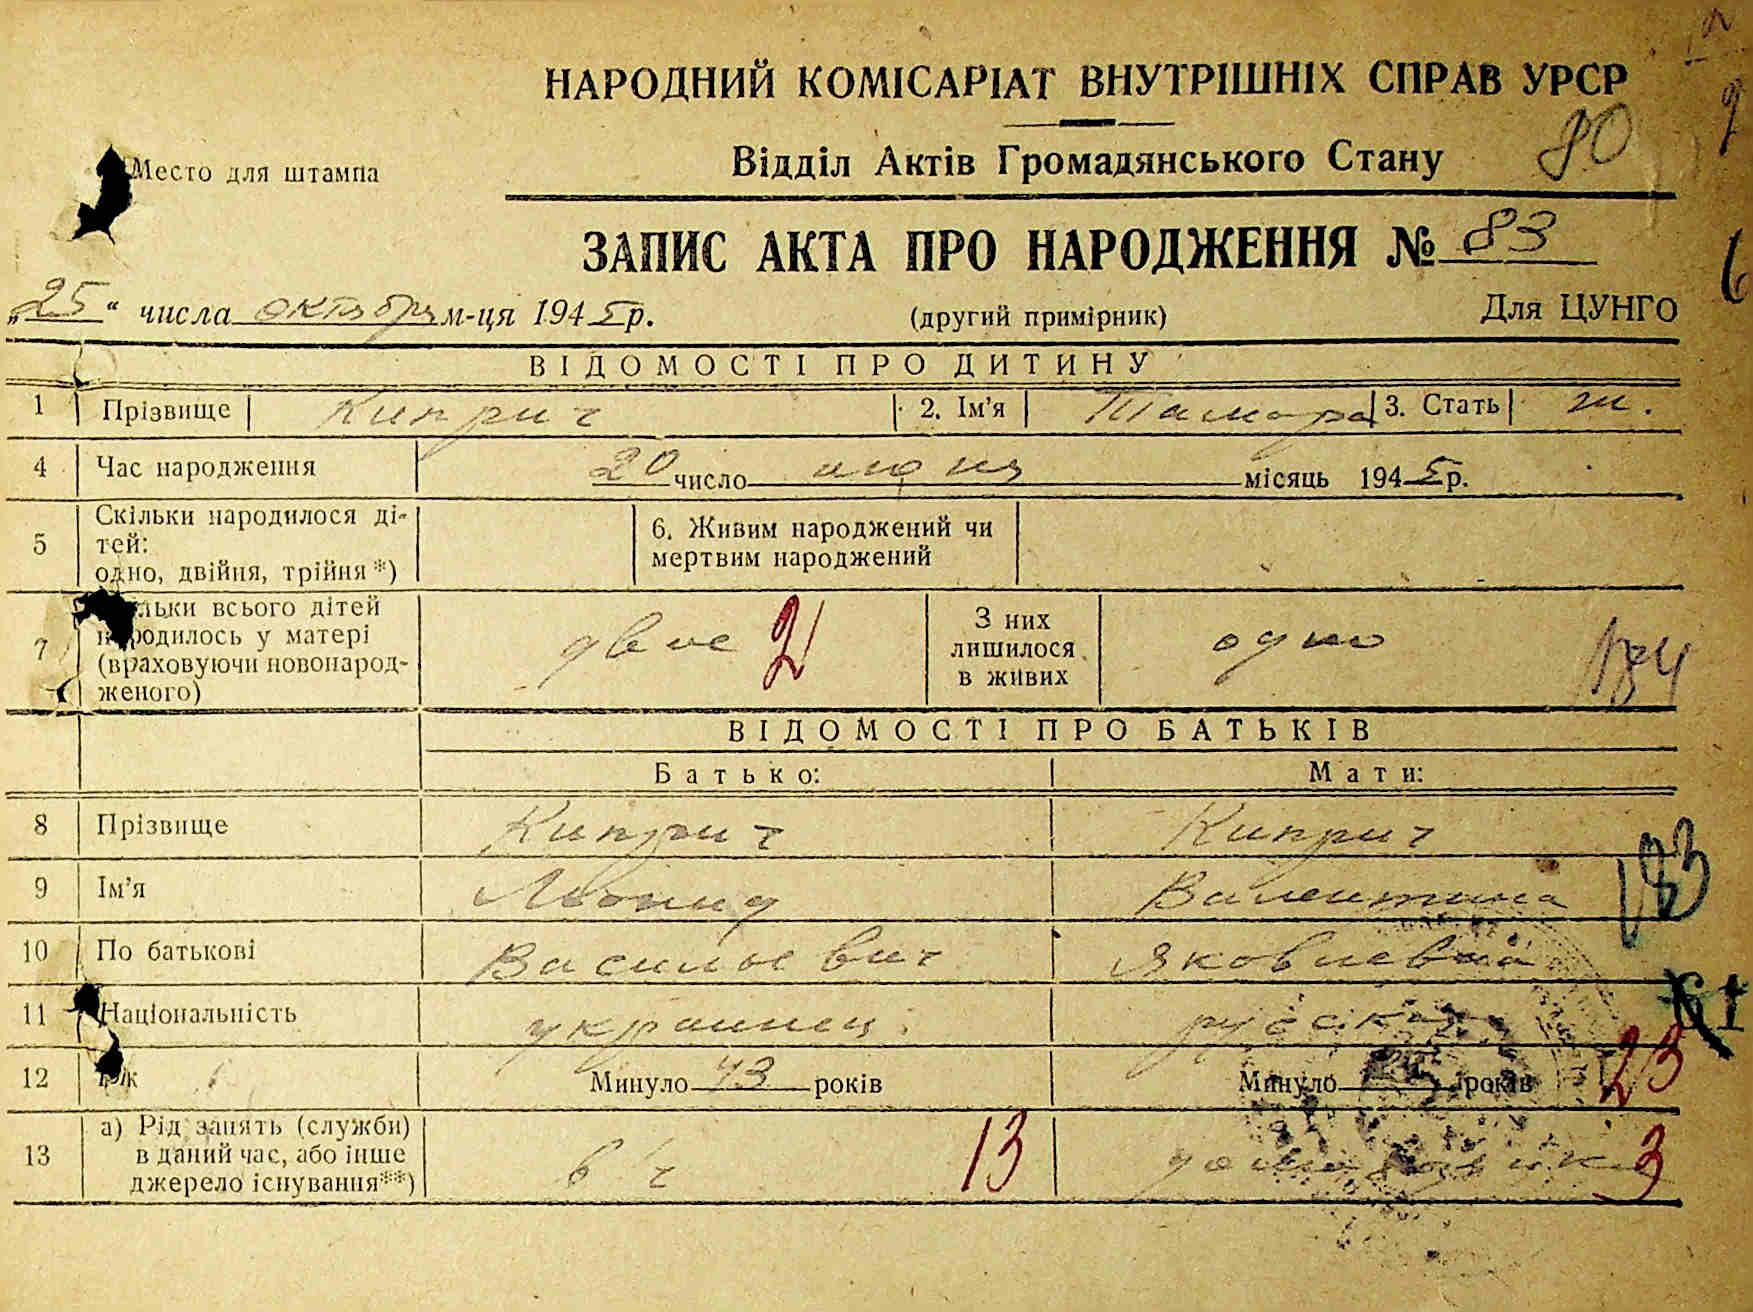 НАРОДНИЙ КОМІСАРІАТ ВНУТРІШНІХ СПРАВ УРСР
Место для штампа
Відділ Актів Громадянського Стану
80
ЗАПИС АКТА ПРО НАРОДЖЕННЯ № 83
„25“ числа октября м-ця 1945 р.
(другий примірник)
Для ЦУНГО
ВІДОМОСТІ ПРО ДИТИНУ
1 Прізвище Киприч 2. Ім'я Тамара 3. Стать ж.
4 Час народження 20 число июня місяць 1945 р.
5 Скільки народилося ді-
тей:
одно, двійня, трійня*)
6. Живим народжений чи
мертвим народжений
7 льки всього дітей
народилось у матері
(враховуючи новонарод-
женого)
двое 2
З них
лишилося
в живих
одно
ВІДОМОСТІ ПРО БАТЬКІВ
Батько: Мати:
8 Прізвище Киприч Киприч
183
9 Ім'я Леонид Валентина
10 По батькові Васильевич Яковлевна
11 Національність украинец. русская
61
12 Вік Минуло 43 років Минуло років 23
13 а) Рід занять (служби)
в даний час, або інше
джерело існування**)
в/ч 13 домохозяйка 3